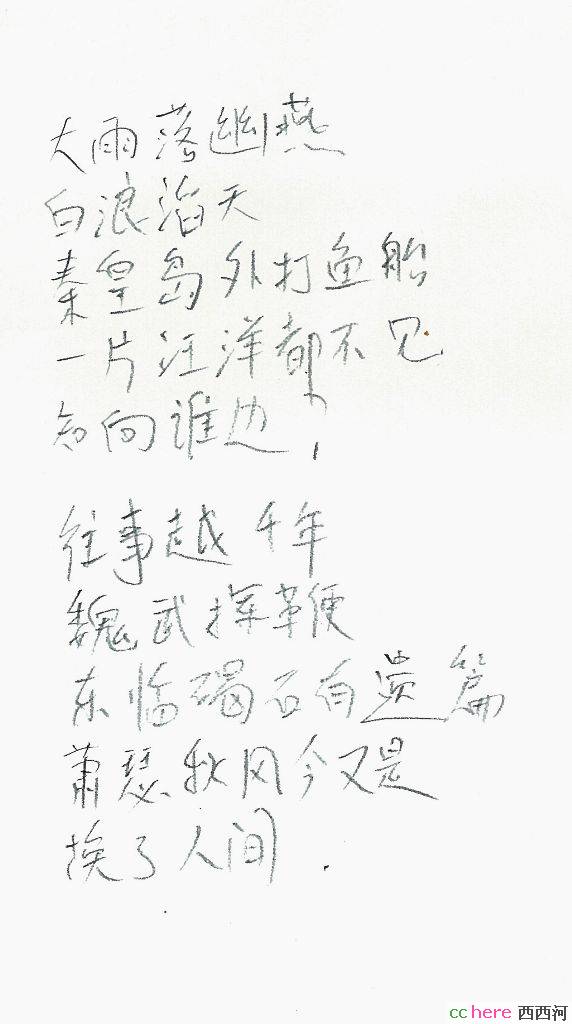 大雨落幽燕
白浪滔天
秦皇岛外打鱼船
一片汪洋都不见
知向谁边?
往事越千年
魏武挥鞭
东临碣石有遗篇
萧瑟秋风今又是
换了人间.
cchere 西西河